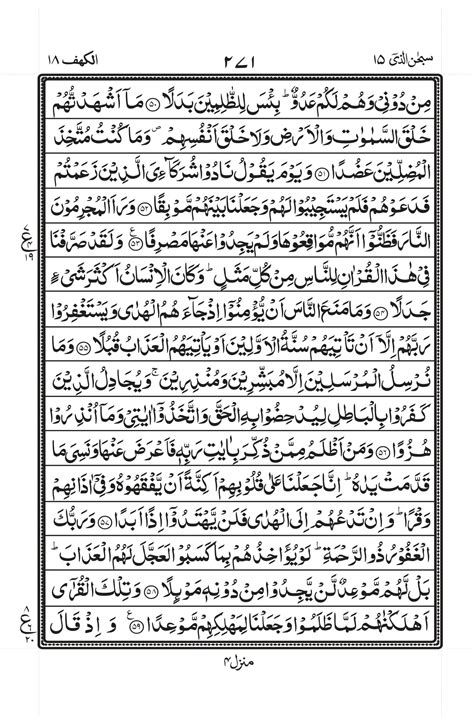 سبحٰن الذی ۱۵
۲۷۱
الکهف ۱۸
مِنْ دُوْنِیْ وَهُمْ لَكُمْ عَدُوٌّ ؕ بِئْسَ لِلظّٰلِمِیْنَ بَدَلًا ۝۵۰ مَاۤ اَشْهَدْتُّهُمْ
خَلْقَ السَّمٰوٰتِ وَالْاَرْضِ وَلَا خَلْقَ اَنْفُسِهِمْ ۪ وَمَا كُنْتُ مُتَّخِذَ
الْمُضِلِّیْنَ عَضُدًا ۝۵۱ وَیَوْمَ یَقُوْلُ نَادُوْا شُرَكَآءِیَ الَّذِیْنَ زَعَمْتُمْ
فَدَعَوْهُمْ فَلَمْ یَسْتَجِیْبُوْا لَهُمْ وَجَعَلْنَا بَیْنَهُمْ مَّوْبِقًا ۝۵۲ وَرَاَ الْمُجْرِمُوْنَ
النَّارَ فَظَنُّوْۤا اَنَّهُمْ مُّوَاقِعُوْهَا وَلَمْ یَجِدُوْا عَنْهَا مَصْرِفًا ۝۵۳ وَلَقَدْ صَرَّفْنَا
فِیْ هٰذَا الْقُرْاٰنِ لِلنَّاسِ مِنْ كُلِّ مَثَلٍ ؕ وَكَانَ الْاِنْسَانُ اَكْثَرَ شَیْءٍ
جَدَلًا ۝۵۴ وَمَا مَنَعَ النَّاسَ اَنْ یُّؤْمِنُوْۤا اِذْ جَآءَهُمُ الْهُدٰی وَیَسْتَغْفِرُوْا
رَبَّهُمْ اِلَّاۤ اَنْ تَاْتِیَهُمْ سُنَّةُ الْاَوَّلِیْنَ اَوْ یَاْتِیَهُمُ الْعَذَابُ قُبُلًا ۝۵۵ وَمَا
نُرْسِلُ الْمُرْسَلِیْنَ اِلَّا مُبَشِّرِیْنَ وَمُنْذِرِیْنَ ۚ وَیُجَادِلُ الَّذِیْنَ
كَفَرُوْا بِالْبَاطِلِ لِیُدْحِضُوْا بِهِ الْحَقَّ وَاتَّخَذُوْۤا اٰیٰتِیْ وَمَاۤ اُنْذِرُوْا
هُزُوًا ۝۵۶ وَمَنْ اَظْلَمُ مِمَّنْ ذُكِّرَ بِاٰیٰتِ رَبِّهٖ فَاَعْرَضَ عَنْهَا وَنَسِیَ مَا
قَدَّمَتْ یَدٰهُ ؕ اِنَّا جَعَلْنَا عَلٰی قُلُوْبِهِمْ اَكِنَّةً اَنْ یَّفْقَهُوْهُ وَفِیْۤ اٰذَانِهِمْ
وَقْرًا ؕ وَاِنْ تَدْعُهُمْ اِلَی الْهُدٰی فَلَنْ یَّهْتَدُوْۤا اِذًا اَبَدًا ۝۵۷ وَرَبُّكَ
الْغَفُوْرُ ذُو الرَّحْمَةِ ؕ لَوْ یُؤَاخِذُهُمْ بِمَا كَسَبُوْا لَعَجَّلَ لَهُمُ الْعَذَابَ ؕ
بَلْ لَّهُمْ مَّوْعِدٌ لَّنْ یَّجِدُوْا مِنْ دُوْنِهٖ مَوْىِٕلًا ۝۵۸ وَتِلْكَ الْقُرٰۤی
اَهْلَكْنٰهُمْ لَمَّا ظَلَمُوْا وَجَعَلْنَا لِمَهْلِكِهِمْ مَّوْعِدًا ۝۵۹ وَاِذْ قَالَ
منزل ۴
ع
۱۹
ع
۲۰